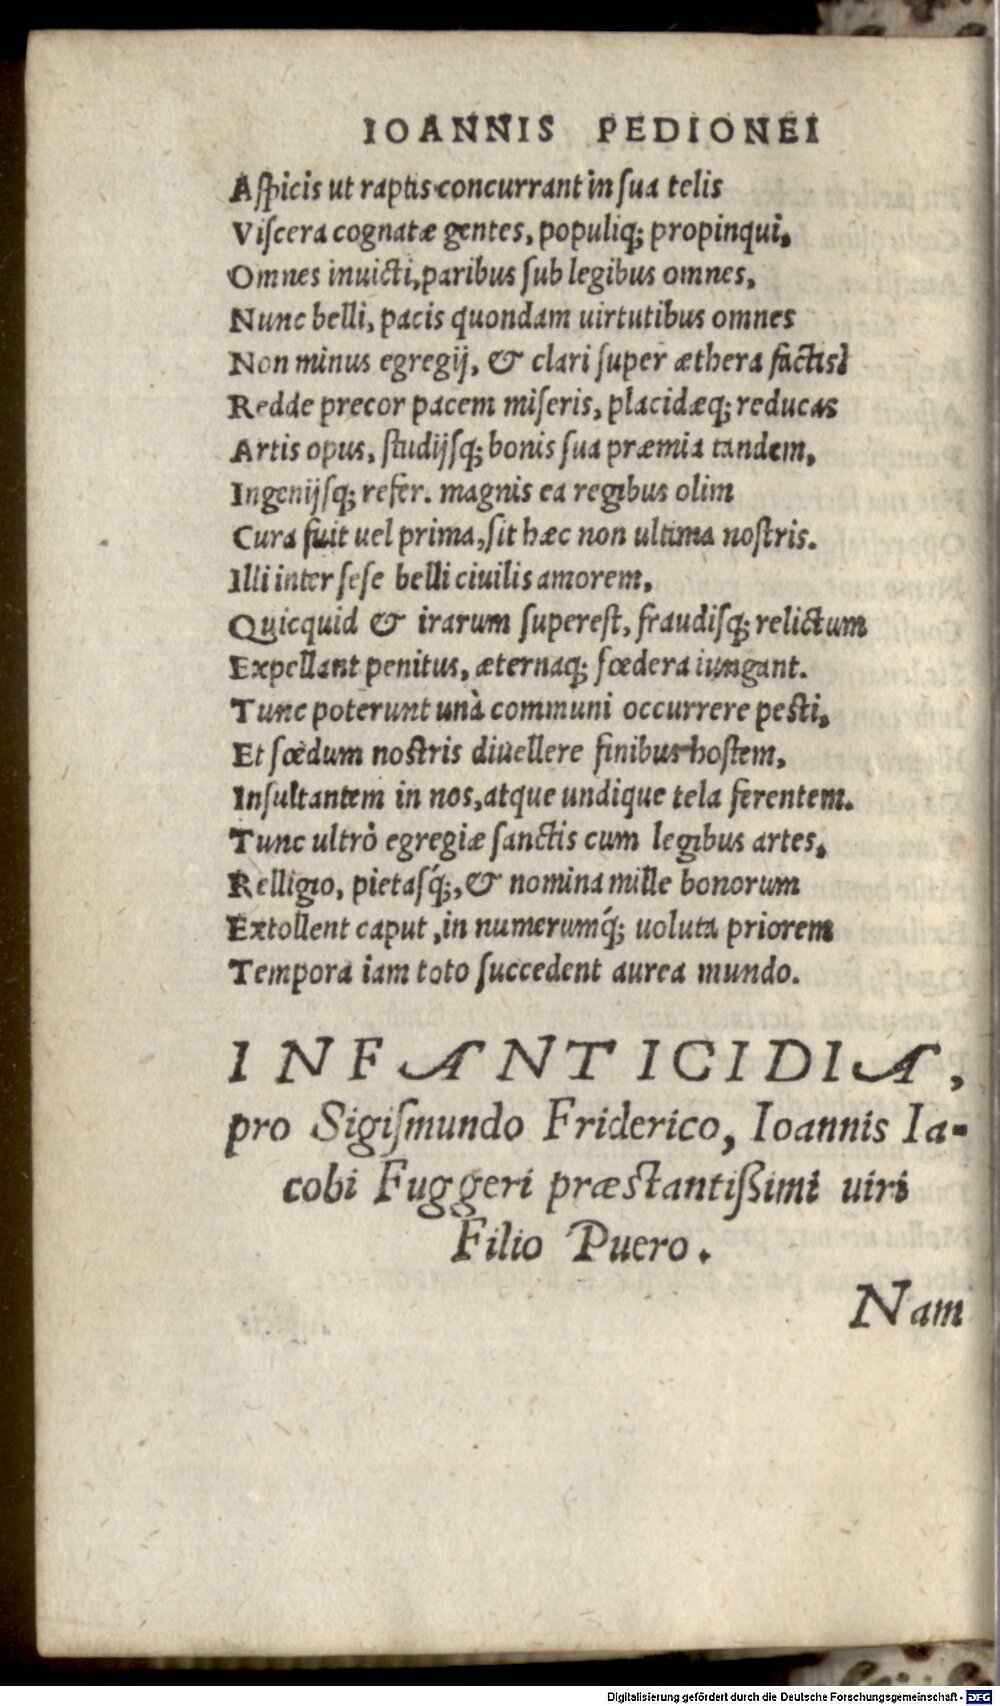 IOANNIS PEDIONEI
Aſpicis ut raptis concurrant in ſua telis
Viſcera cognatæ gentes, populiq; propinqui,
Omnes inuicti, paribus ſub legibus omnes,
Nunc belli, pacis quondam uirtutibus omnes
Non minus egregij, & clari ſuper æthera factis?
Redde precor pacem miſeris, placidæq; reducas
Artis opus, ſtudijſq; bonis ſua præmia tandem,
Ingenijſq; refer. magnis ea regibus olim
Cura fuit uel prima, ſit hæc non ultima noſtris.
Illi inter ſeſe belli ciuilis amorem,
Quicquid & irarum ſupereſt, fraudiſq; relictum
Expellant penitus, æternaq; fœdera iungant.
Tunc poterunt unà communi occurrere peſti,
Et fœdum noſtris diuellere finibus hoſtem,
Inſultantem in nos, atque undique tela ferentem.
Tunc ultrò egregiæ ſanctis cum legibus artes,
Relligio, pietaſq́;, & nomina mille bonorum
Extollent caput, in numerumq́; uoluta priorem
Tempora iam toto ſuccedent aurea mundo.
INFANTICIDIA,
pro Sigiſmundo Friderico, Ioannis Ia-
cobi Fuggeri præſtantißimi uiri
Filio Puero.
Nam
Digitalisierung gefördert durch die Deutsche Forschungsgemeinschaft - DFG